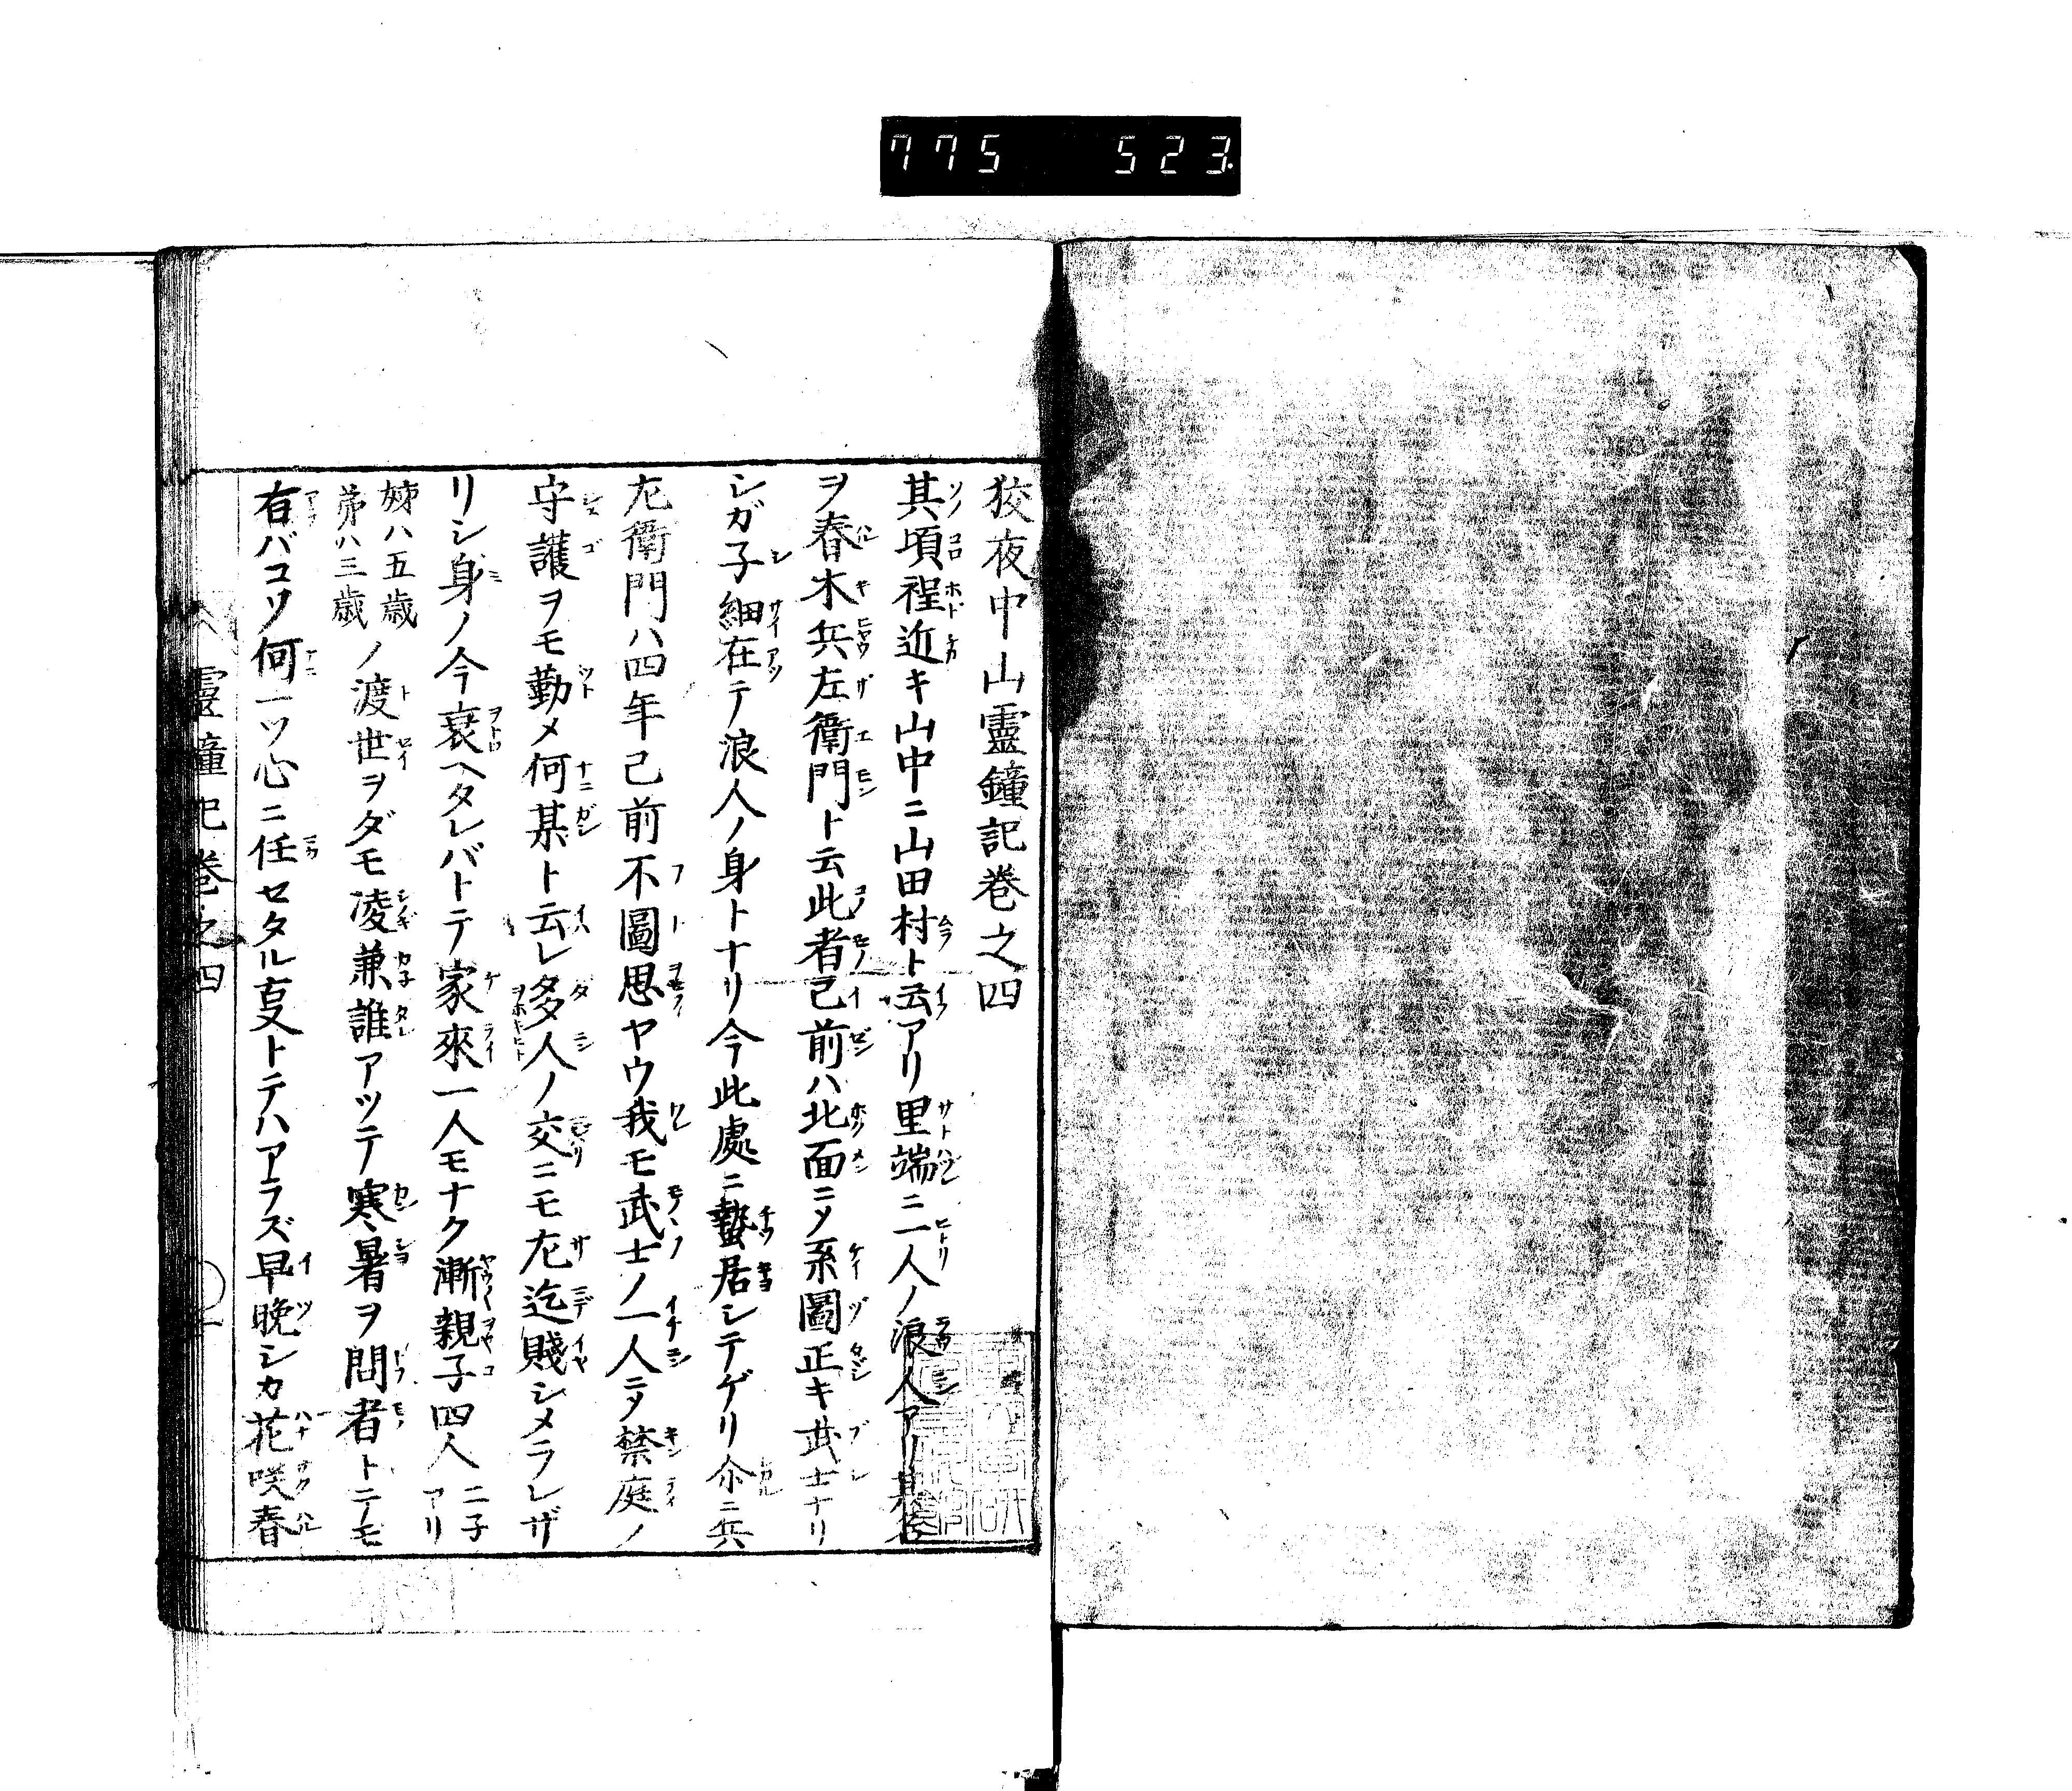 775 523
狡夜中山靈鐘記巻之四
其頃程近キ山中ニ山田村ト云アリ里端ニ一人ノ浪人アリ其名
ヲ春木兵左衛門ト云此者已前ハ北面ニメ系圖正キ武士ナリ
シガ子細在テ浪人ノ身トナリ今此處ニ蟄居シテゲリ尒ニ兵
左衛門ハ四年已前不圖思ヤウ我モ武士ノ一人ニテ禁庭ノ
守護ヲモ勤メ何某ト云レ多人ノ交ニモ左迄賤シメラレザ
リシ身ノ今衰ヘタレバトテ家來一人モナク漸親子四人二子アリ
姉ハ五歳弟ハ三歳ノ渡世ヲダモ凌兼誰アッテ寒暑ヲ問者トニモ
有バコソ何一ツ心ニ任セタル叓トテハアラズ早晩シカ花咲春
靈鐘記巻之四